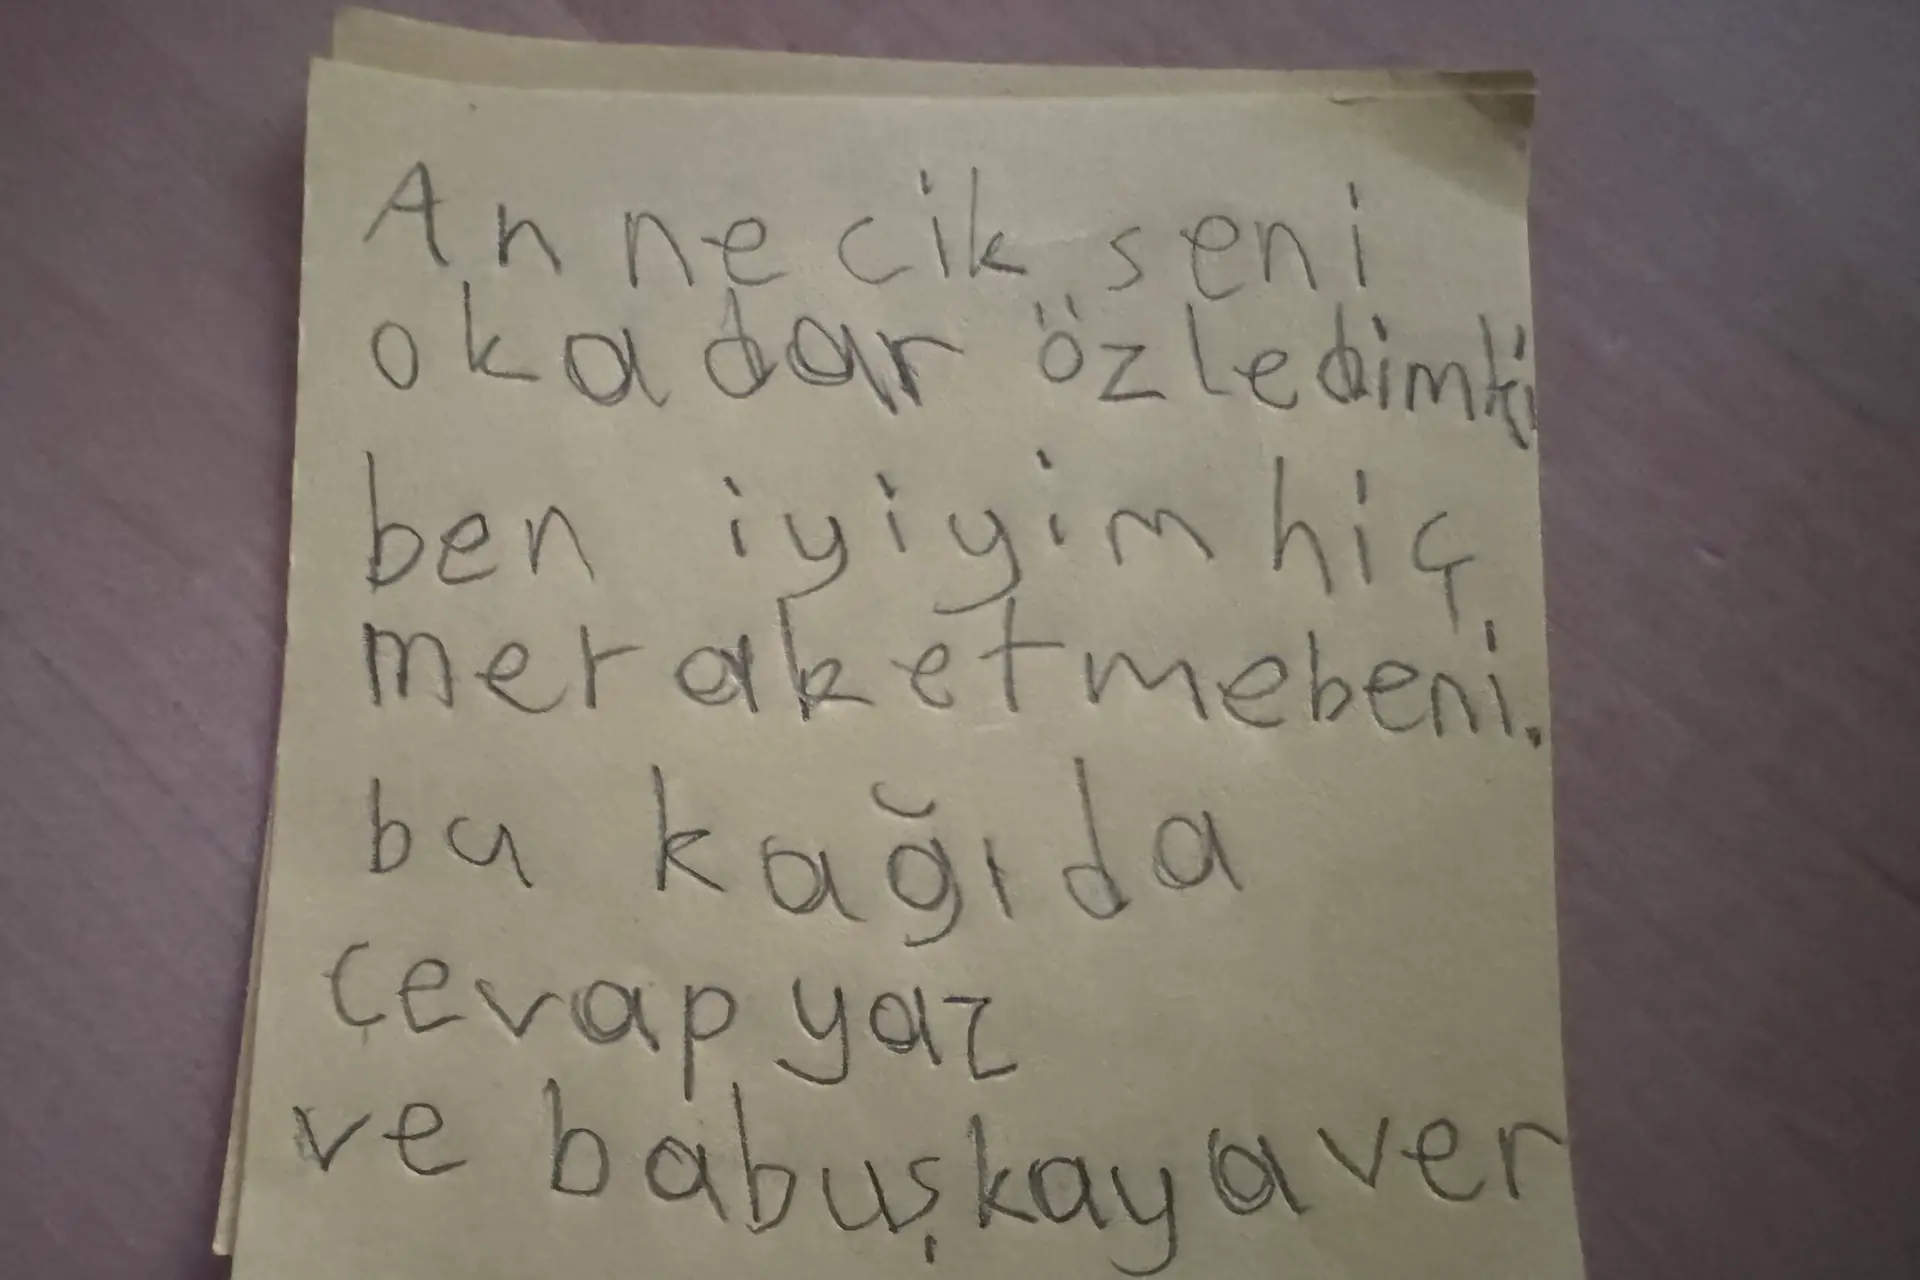 Annecik seni
okadar özledimki
ben iyiyim hiç
meraketmebeni.
bu kağıda
çevap yaz
ve babuşkaya ver